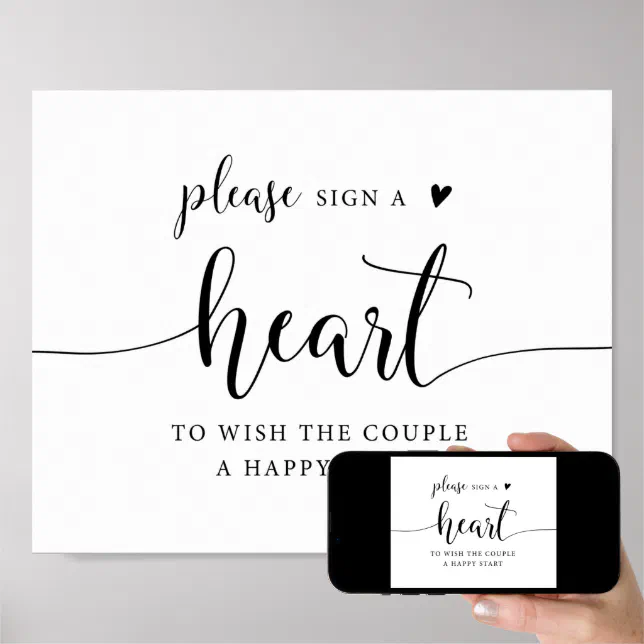 please SIGN A
heart
TO WISH THE COUPLE
A HAPPY
please SIGN A
heart
TO WISH THE COUPLE
A HAPPY START